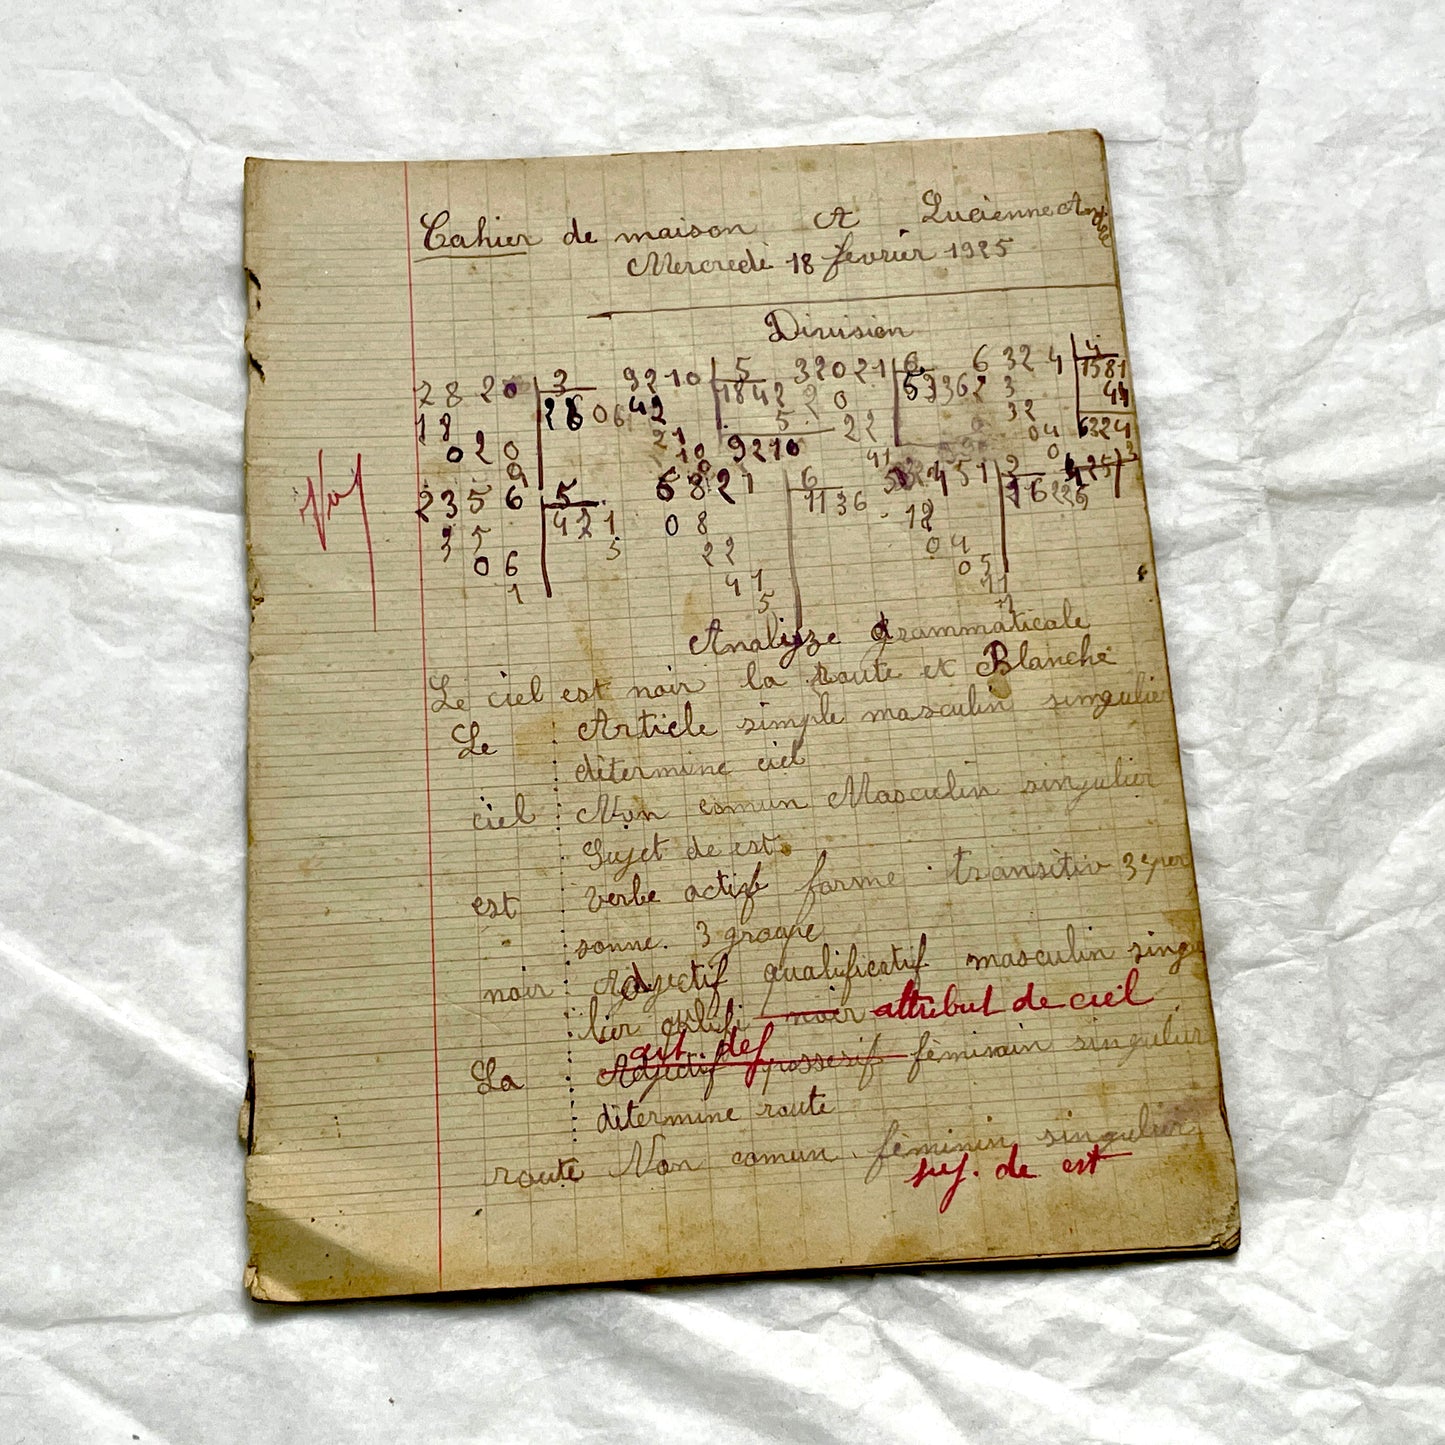 Cahier de maison A Lucienne Andrée
Mercredi 18 février 1925
Division
2820 3 9210 5 32021 6 6324 4
18 42 1842 20 53362 3 1581
020 21 5 22 32 4
0 10 9210 41 04 6324
2356 5 6821 6 451 3
35 421 08 1136 18
06 5 22 04
1 41 05
5 11
Vu
Analyze grammaticale
Le ciel est noir la route et Blanche
Le : Article simple masculin singulier
ditermine ciel
ciel : Non comun Masculin singulier
Sujet de est
est : verbe actif forme transitiv 3 per
sonne. 3 groupe
noir : Adjectif qualificatif masculin singu
lier qulifi noir attribut de ciel
art. def
La : Adjectif possesif féminin singulier
ditermine route
route Non comun. féminin singulier
suj. de est